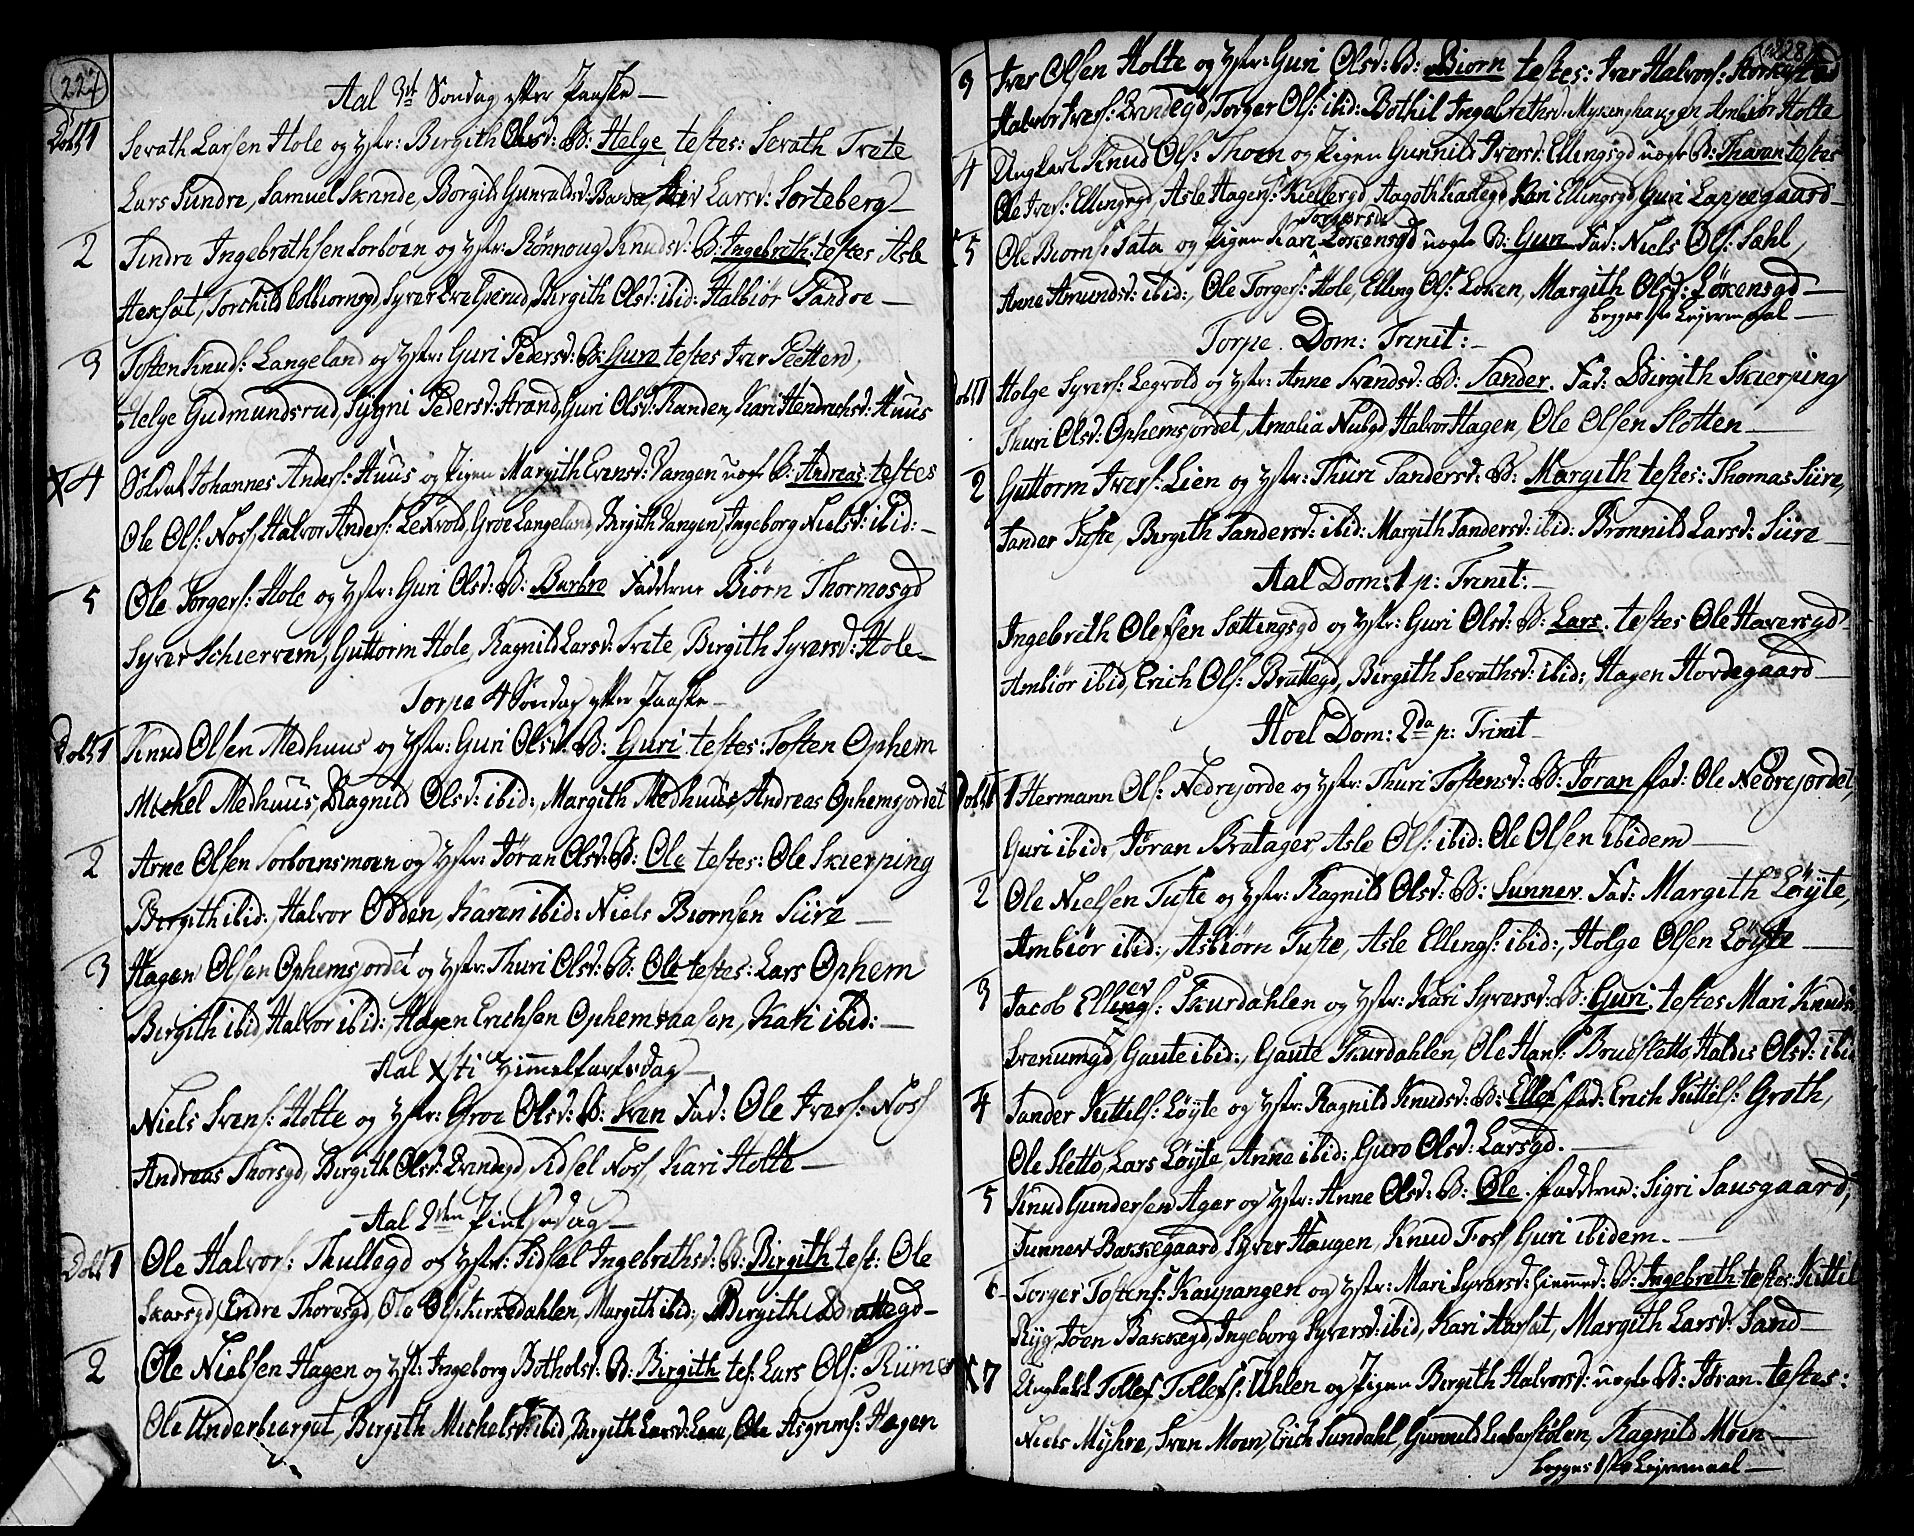 227
Aal 3die Søndag efter Paaske
Døbt 1 Sevath Larsen Hole og Hstr: Birgith Olsd: B: Helge testes: Sevath Trete
Lars Sundre, Samuel Skinde, Borgild Gunvaldsd: Larsd: Sorteberg
2 Sindre Ingebrethsen Torboen og Hstr: Rønnoug Knudsd: B: Ingebreth testes Asle
Torchild Colbiornsgd, Syver Birgith Olsd: ibid: Halbiør Sandoe
3 Tosten Knuds: Langeland og Hstr: Guri Pedersd: B: Guro testes Iver
Helge Gudmundsrud, Sygni Pedersd: Strand, Guri Olsd: Randen, Kari Hendrichsd: Huus
X 4 Soldat Johannes Anders: Huus og Pigen Margith Evensd: Vangen uægte B: Andreas testes
Ole Ols: Noss, Halvor Anders: Lexvold, Groe Langeland, Birgith Vangen, Ingeborg Nielsd: ibid:
5 Ole Torgers: Hole og Hstr: Guri Olsd: B: Barbro Fadderne Biørn Thormosgd
Syver Schiervem, Guttorm Hole, Ragnild Larsd: Trete, Birgith Syversd: Hole
Torpe 4 Søndag efter Paaske
Døbt 1 Knud Olsen Medhuus og Hstr: Guri Olsd: B: Guri testes: Tosten Ophem
Michel Medhuus, Ragnild Olsd: ibid:, Margith Medhuus, Andreas Ophemsjordet
2 Arne Olsen Torboensmoen og Hstr: Jøran Olsd: B: Ole testes: Ole Skierping
Birgith ibid:, Halvor Odden, Karen ibid: Niels Biornsen Siire
3 Hagen Olsen Ophemsjordet og Hstr: Thuri Olsd: B: Ole testes: Lars Ophem
Birgith ibid Halvor ibid:, Hagen Erichsen Ophemsaasen, Kari ibid:
Aal Xsti Himmelfartsdag
Niels Svens: Holte og Hstr: Groe Olsd: B: Sven Fad: Ole Ivers: Noss
Andreas Thorsgd, Birgith Olsd: Qvindegd, Sidsel Noss, Kari Holte
Aal 2den Pintsedag
Døbt 1 Ole Halvors: Thullegd og Hstr: Sidsel Ingebrethsd: B: Birgith test: Ole
Skarsgd, Endre Thoresgd, Ole Ols: Kirkedahlen, Margith ibid:, Birgith Brattegd
2 Ole Nielsen Hagen og Hstr: Ingeborg Botholsd: B: Birgith tes: Lars Ols:
Ole Underbierget, Birgith Michelsd: ibid, Birgith Larsd: Ole Asgrims: Hagen
228
3 Iver Olsen Holte og Hstr: Guri Olsd: B: Biørn testes: Iver Halvors:
Halvor Ivers: Qvindegd, Torger Ols: ibid: Bothil Ingebrethsd: Myhrenghaugen Ambiør Holte
4 Ungkarl Knud Ols: Thoen og Pigen Gunnild Iversd: Ellingsgd uægte B: Tharan testes
Ole Ivers: Ellingsgd, Asle Hagens: Kiellergd, Aagoth Kastegd Kari Ellingsgd Guri Lappegaard
Torgersd:
5 Ole Biorns: Tata og Pigen Kari Løkensgd uægte B: Guri Fad: Niels Ols: Sahl,
Anne Amundsd: ibid:, Ole Torgers: Hole, Elling Ols: Løken, Margith Olsd: Løkensgd
begges 1ste Lejermaal
Torpe Dom: Trinit:
Døbt 1 Holge Syvers: Legvold og Hstr: Anne Svendsd: B: Sander. Fad: Birgith Skierping
Thuri Olsd: Ophemsjordet, Amalia Nubgd Halvor Hagen, Ole Olsen Slotten
2 Guttorm Ivers: Lien og Hstr: Thuri Sandersd: B: Margith testes: Thomas Siire,
Sander Tufte, Birgith Sandersd: ibid: Margith Sandersd: ibid: Brønnild Larsd: Siire
Aal Dom: 1 p: Trinit:
Ingebreth Olesen Sættingsgd og Hstr: Guri Olsd: B: Lars. testes Ole Haversgd
Ambiør ibid, Erich Ols: Brattegd, Birgith Sevathsd: ibid:, Hagen Hovdegaard
Hoel Dom: 2da p: Trinit
Døbt 1 Hermann Ols: Nedrejorde og Hstr: Thuri Tostensd: B: Jøran fad: Ole Nedrejordet,
Guri ibid: Jøran Bratager Asle Ols: ibid: Ole Olsen ibidem
2 Ole Nielsen Tufte og Hstr: Ragnild Olsd: B: Sunnev. Fad: Margith Løyte,
Ambiør ibid:, Asbiørn Tufte, Asle Ellings: ibid:, Holge Olsen Løyte
3 Jacob Ellings: Skurdahlen og Hstr: Kari Syversd: B: Guri testes Mari Knudsd
Svenumgd, Gaute ibid:, Gaute Skurdahlen, Ole Hans: Brudsletto Haldis Olsd: ibid
4 Sander Kittils: Løyte og Hstr: Ragnild Knudsd: B: Ellef fad: Erich Kittils: Groth,
Ole Sletto, Lars Løyte, Anne ibid: Guro Olsd: Larsgd.
5 Knud Gundersen Ager og Hstr: Anne Olsd: B: Ole. fadderne: Sigri Sausgaard,
Sunnev Bakkegaard, Syver Haugen, Knud Foss, Guri ibidem.
6 Torger Tostens: Kaupangen og Hstr: Mari Syversd: B: Ingebreth testes: Kittil
Ryg, Joen Bakkegd, Ingeborg Syversd: ibid, Kari Aasæt, Margith Larsd: Sand
X 7 Ungkarl Tollef Tollefs: Uhlen og Pigen Birgith Halvorsd: uægte B: Jøran. testes:
Niels Myhre, Sven Moen, Erich Sundahl, Gunnild Moen
begges 1ste Lejermaal